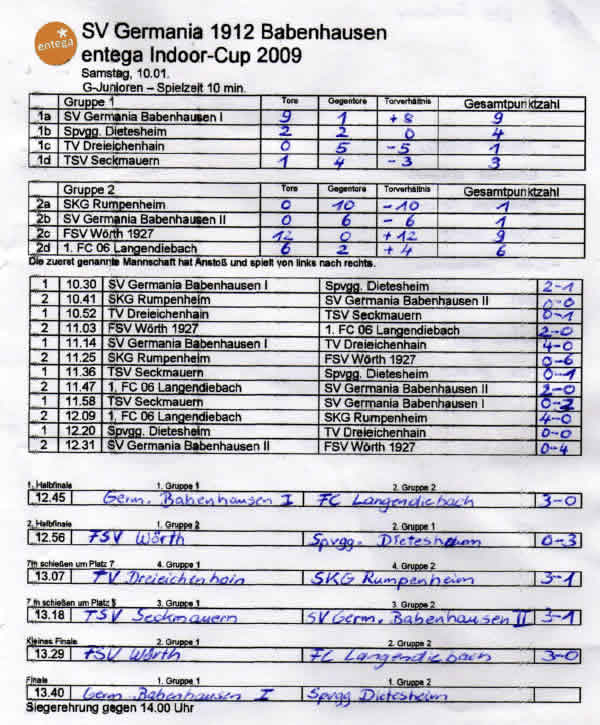 entega
SV Germania 1912 Babenhausen
entega Indoor-Cup 2009
Samstag, 10.01.
G-Junioren – Spielzeit 10 min.
Gruppe 1 Tore Gegentore Torverhältnis Gesamtpunktzahl
1a SV Germania Babenhausen I 9 1 +8 9
1b Spvgg. Dietesheim 2 2 0 4
1c TV Dreieichenhain 0 5 -5 1
1d TSV Seckmauern 1 4 -3 3
Gruppe 2 Tore Gegentore Torverhältnis Gesamtpunktzahl
2a SKG Rumpenheim 0 10 -10 1
2b SV Germania Babenhausen II 0 6 -6 1
2c FSV Wörth 1927 12 0 +12 9
2d 1. FC 06 Langendiebach 6 2 +4 6
Die zuerst genannte Mannschaft hat Anstoß und spielt von links nach rechts.
1 10.30 SV Germania Babenhausen I Spvgg. Dietesheim 2-1
2 10.41 SKG Rumpenheim SV Germania Babenhausen II 0-0
1 10.52 TV Dreieichenhain TSV Seckmauern 0-1
2 11.03 FSV Wörth 1927 1. FC 06 Langendiebach 2-0
1 11.14 SV Germania Babenhausen I TV Dreieichenhain 4-0
2 11.25 SKG Rumpenheim FSV Wörth 1927 0-6
1 11.36 TSV Seckmauern Spvgg. Dietesheim 0-1
2 11.47 1. FC 06 Langendiebach SV Germania Babenhausen II 2-0
1 11.58 TSV Seckmauern SV Germania Babenhausen I 0-2
2 12.09 1. FC 06 Langendiebach SKG Rumpenheim 4-0
1 12.20 Spvgg. Dietesheim TV Dreieichenhain 0-0
2 12.31 SV Germania Babenhausen II FSV Wörth 1927 0-4
1. Halbfinale 1. Gruppe 1 2. Gruppe 2
12.45 Germ. Babenhausen I FC Langendiebach 3-0
2. Halbfinale 1. Gruppe 2 2. Gruppe 1
12.56 FSV Wörth Spvgg. Dietesheim 0-3
7m schießen um Platz 7 4. Gruppe 1 4. Gruppe 2
13.07 TV Dreieichenhain SKG Rumpenheim 3-1
7m schießen um Platz 5 3. Gruppe 1 3. Gruppe 2
13.18 TSV Seckmauern SV Germ. Babenhausen II 3-1
Kleines Finale 2. Gruppe 1 2. Gruppe 2
13.29 FSV Wörth FC Langendiebach 3-0
Finale 1. Gruppe 1 1. Gruppe 2
13.40 Germ Babenhausen I Spvgg Dietesheim
Siegerehrung gegen 14.00 Uhr